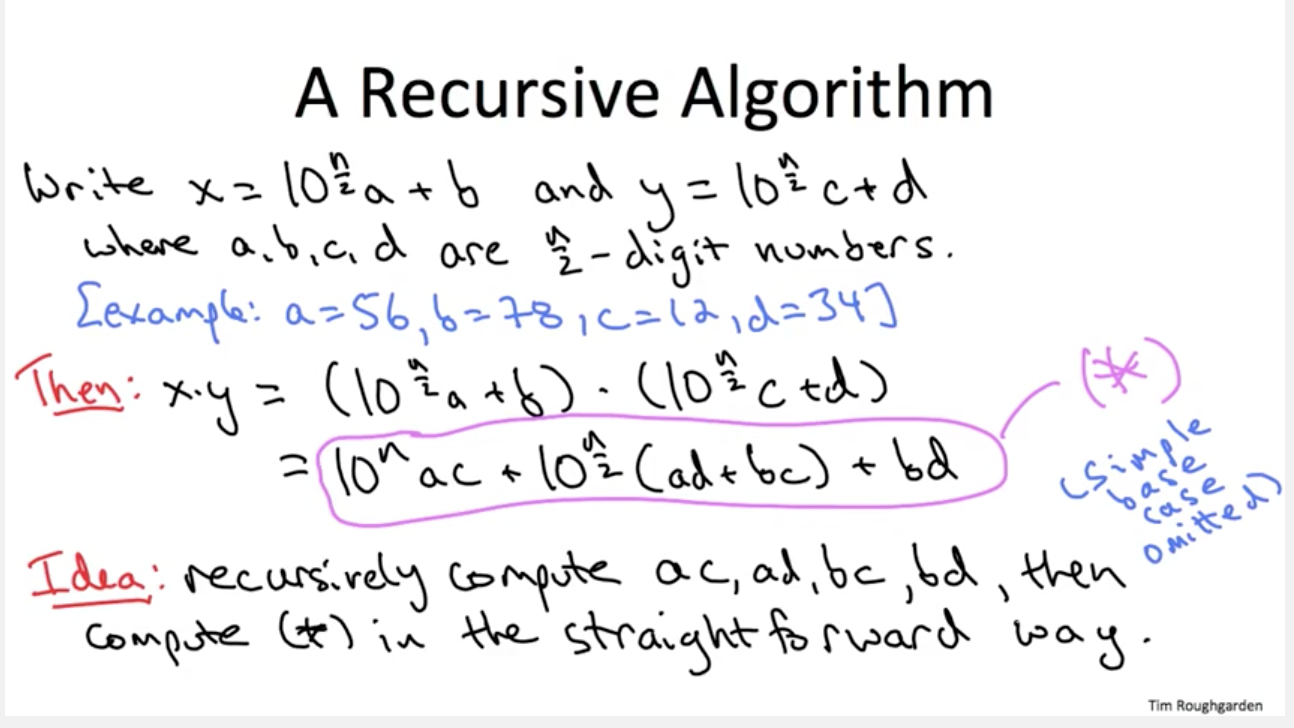 A Recursive Algorithm
Write x = 10^{n/2} a + b and y = 10^{n/2} c + d
where a, b, c, d are n/2 - digit numbers.
[example: a=56, b=78, c=12, d=34]
Then: x.y = (10^{n/2} a + b) . (10^{n/2} c + d)
= 10^n ac + 10^{n/2} (ad + bc) + bd
(*)
(simple
base
case
omitted)
Idea: recursively compute ac, ad, bc, bd, then
compute (*) in the straightforward way.
Tim Roughgarden